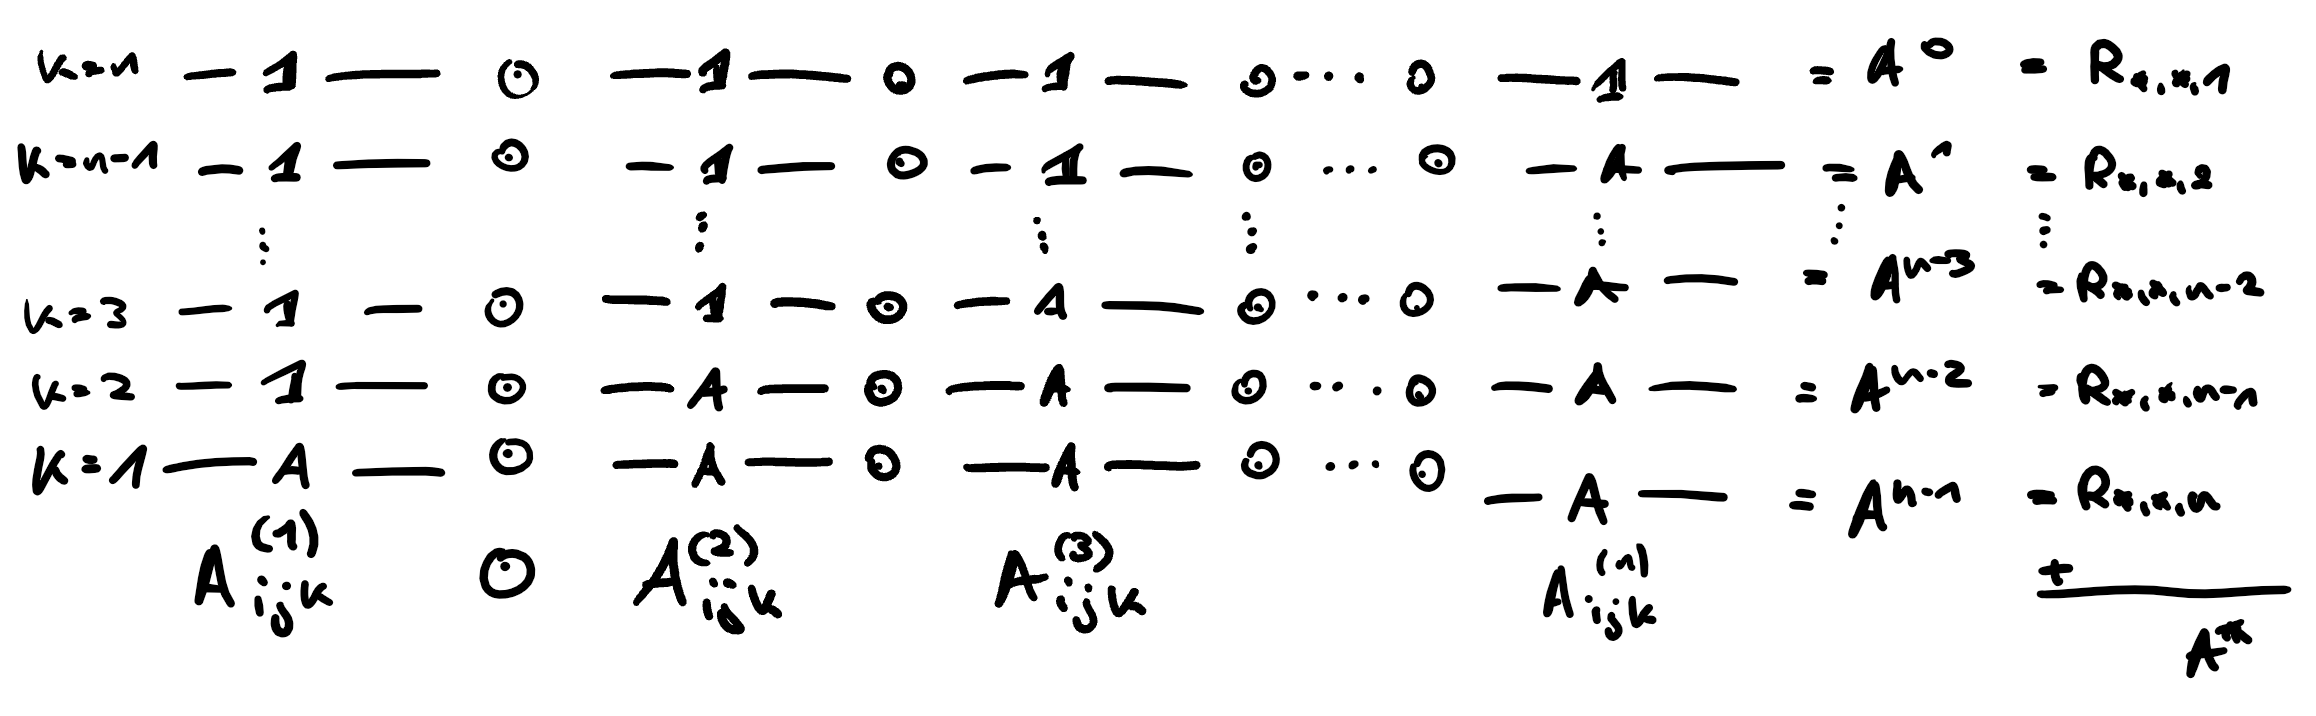 k=n — 1 — ⊙ — 1 — ⊙ — 1 — ⊙ ... ⊙ — 1 — = A^0 = R_{*,*,1}
k=n-1 — 1 — ⊙ — 1 — ⊙ — 1 — ⊙ ... ⊙ — A — = A^1 = R_{*,*,2}
⋮ ⋮ ⋮ ⋮ ⋮ ⋮ ⋮
k=3 — 1 — ⊙ — 1 — ⊙ — A — ⊙ ... ⊙ — A — = A^{n-3} = R_{*,*,n-2}
k=2 — 1 — ⊙ — A — ⊙ — A — ⊙ ... ⊙ — A — = A^{n-2} = R_{*,*,n-1}
k=1 — A — ⊙ — A — ⊙ — A — ⊙ ... ⊙ — A — = A^{n-1} = R_{*,*,n}
A^{(1)}_{ijk} ⊙ A^{(2)}_{ijk} A^{(3)}_{ijk} A^{(n)}_{ijk} +
A^*